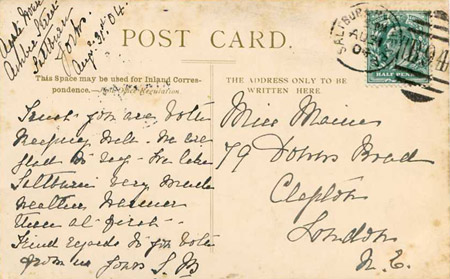 Ambra Street
Saltburn
Yorks.
Aug: 31st. 04.
POST CARD.
SALTBURN
AU
04
HALF PENNY
This Space may be used for Inland Corres-
pondence.—(Post Office Regulation.
THE ADDRESS ONLY TO BE
WRITTEN HERE.
Trust you are both
keeping well. We are
glad to say we like
Saltburn very much
weather warmer
than at first.
Kind regards to you both
from us yours S. B
Miss Maine
79 Downs Road
Clapton
London
N. E.